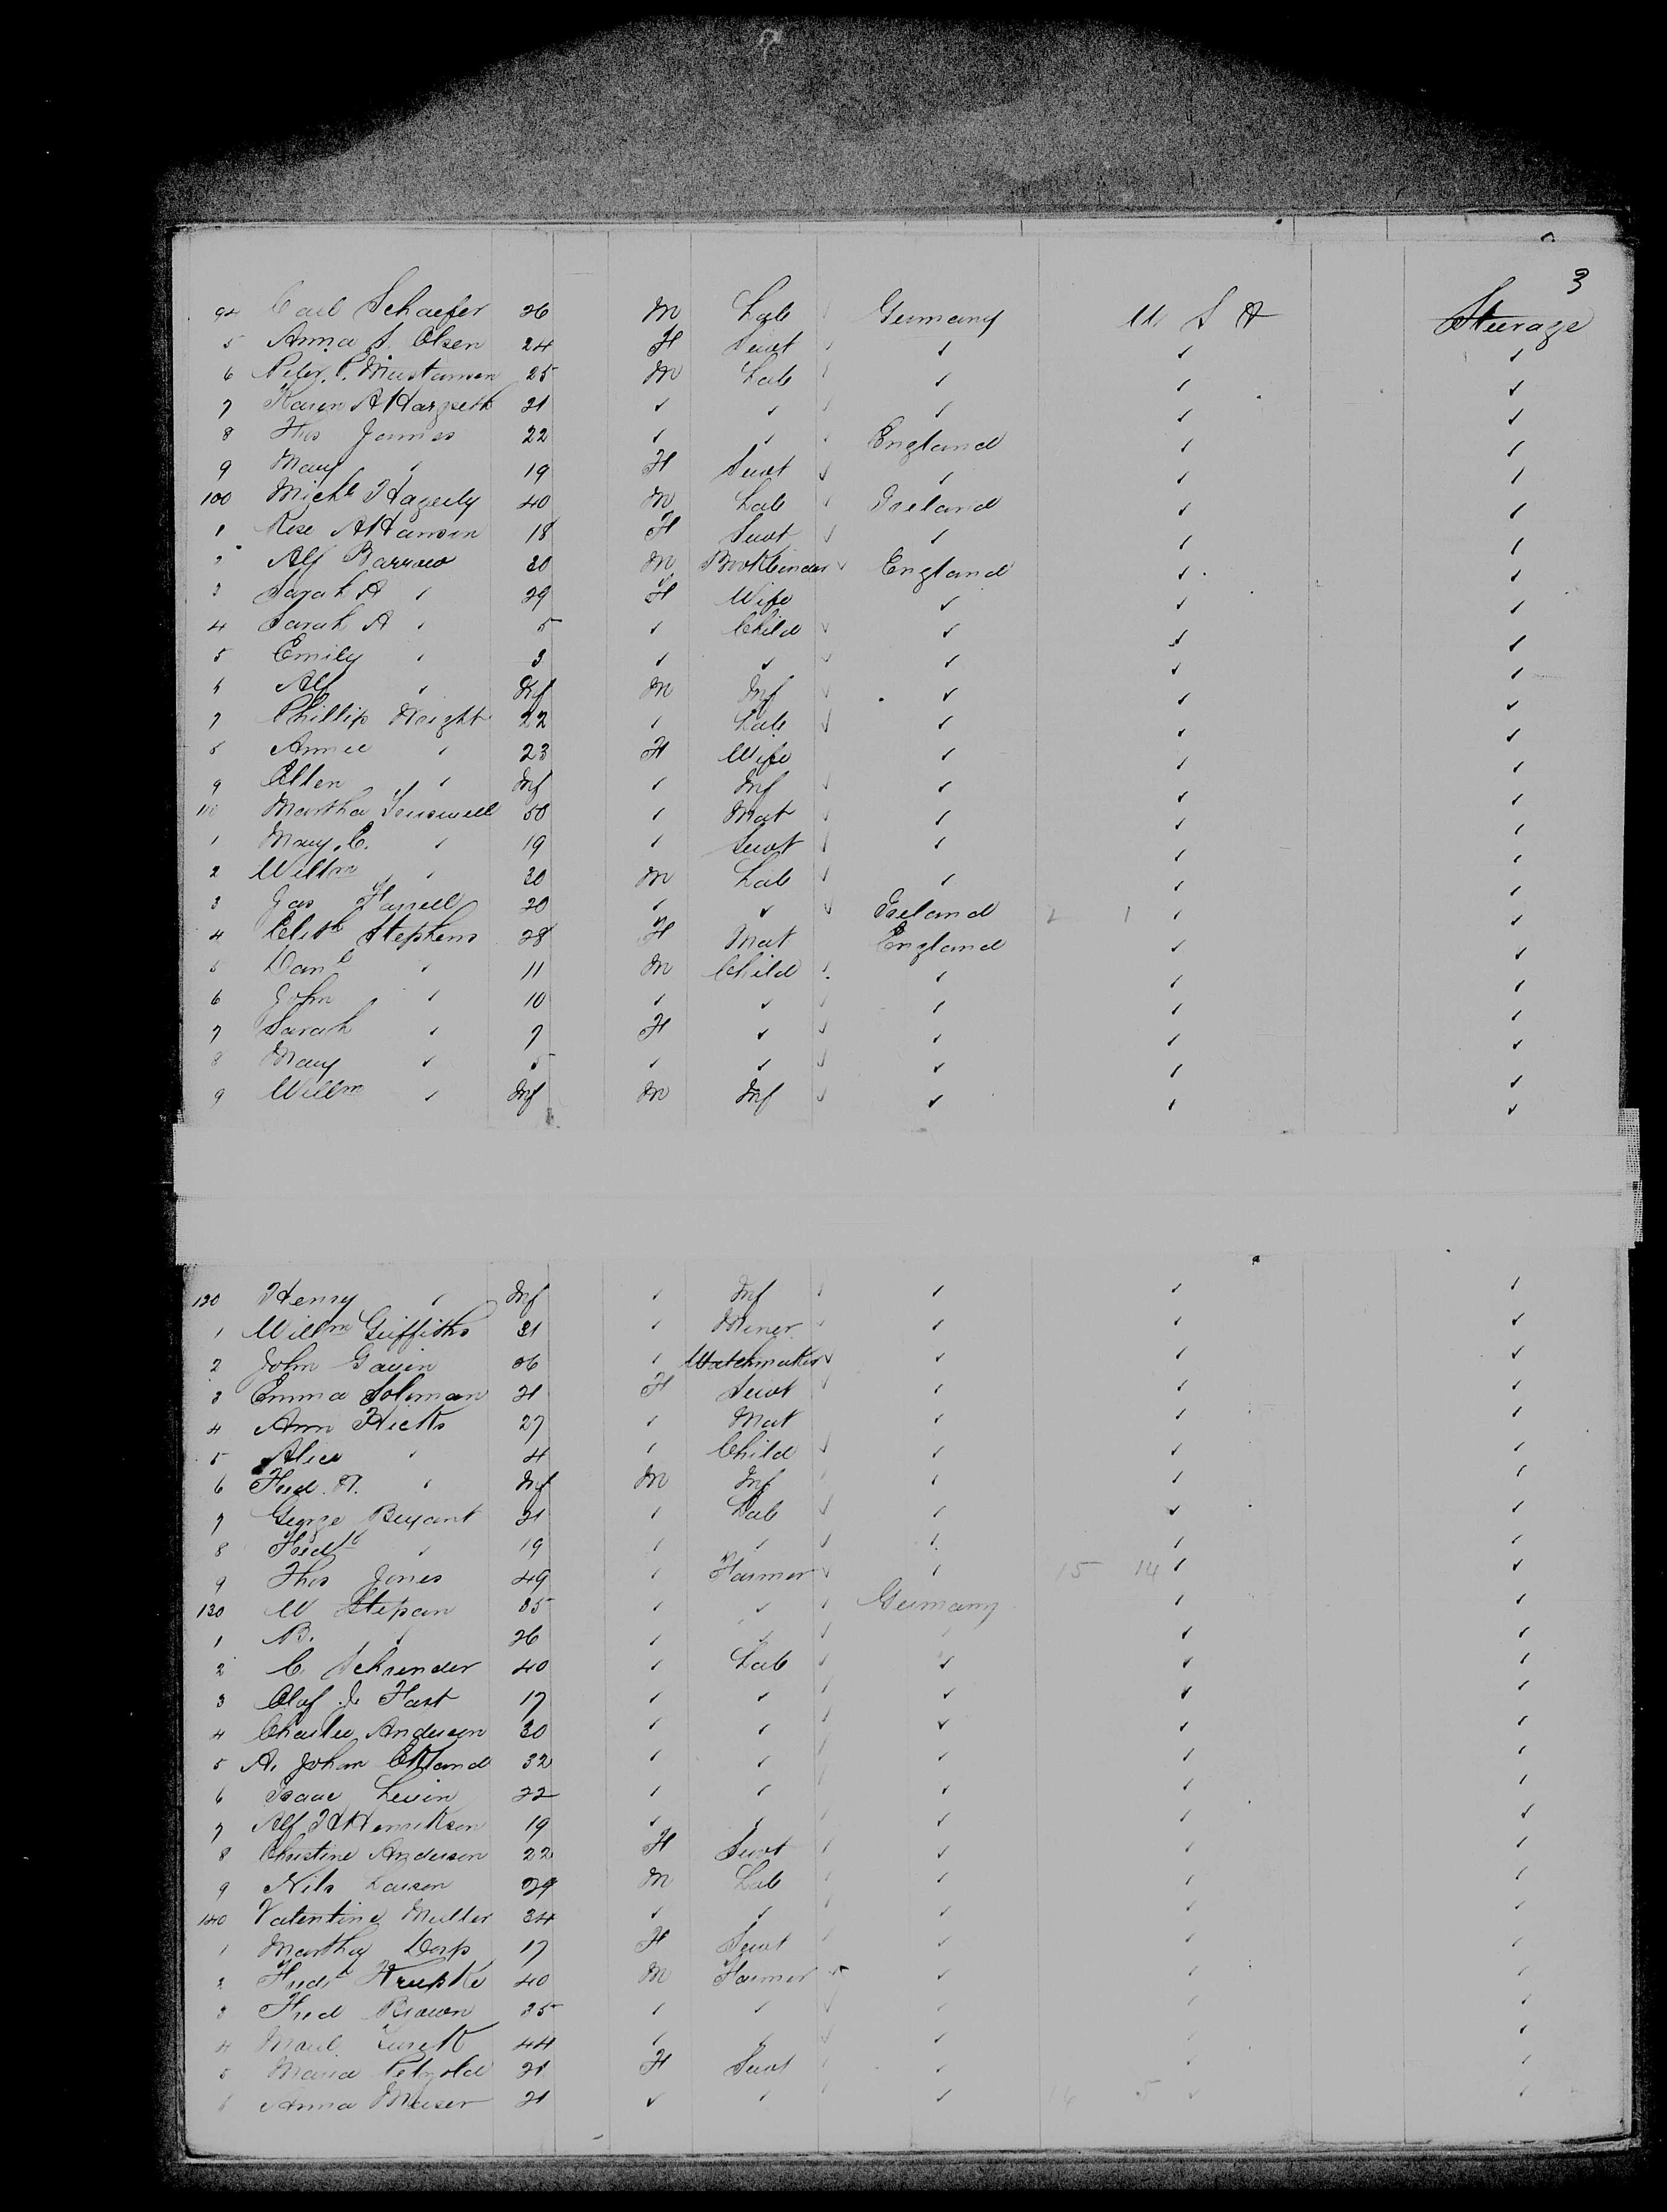 3
94 Carl Schaefer 26 M Lab ✓ Germany U S A Steerage
5 Anna S. Olsen 24 F Servt ✓ ✓ ✓ ✓
6 Peter P. 25 M Lab ✓ ✓ ✓ ✓
7 Karen 21 ✓ ✓ ✓ ✓ ✓ ✓
8 Thos James 22 ✓ ✓ ✓ England ✓ ✓
9 Mary ✓ 19 F Servt ✓ ✓ ✓ ✓
100 Michl Hagerty 40 M Lab ✓ Ireland ✓ ✓
1 Rose 18 F Servt ✓ ✓ ✓ ✓
2 Alf Barrow 30 M Bookbinder ✓ England ✓ ✓
3 Sarah A ✓ 29 F Wife ✓ ✓ ✓
4 Sarah A ✓ 5 ✓ Child ✓ ✓ ✓ ✓
5 Emily ✓ 3 ✓ ✓ ✓ ✓ ✓ ✓
6 Alf ✓ Inf M Inf ✓ ✓ ✓ ✓
7 Phillip Wright 22 ✓ Lab ✓ ✓ ✓ ✓
8 Annie ✓ 23 F Wife ✓ ✓ ✓
9 Ellen ✓ Inf ✓ Inf ✓ ✓ ✓ ✓
110 Martha 50 ✓ Mat ✓ ✓ ✓ ✓
1 Mary C. ✓ 19 ✓ Servt ✓ ✓ ✓ ✓
2 Willm ✓ 20 M Lab ✓ ✓ ✓ ✓
3 Jas Farrell 20 ✓ ✓ ✓ Ireland 2 1 ✓ ✓
4 Elizth Stephens 28 F Mat England ✓ ✓
5 Danl ✓ 11 M Child ✓ ✓ ✓ ✓
6 John ✓ 10 ✓ ✓ ✓ ✓ ✓ ✓
7 Sarah ✓ 7 F ✓ ✓ ✓ ✓ ✓
8 Mary ✓ 5 ✓ ✓ ✓ ✓ ✓ ✓
9 Willm ✓ Inf M Inf ✓ ✓ ✓ ✓
120 Henry ✓ Inf ✓ Inf ✓ ✓ ✓ ✓
1 Willm Griffiths 31 ✓ Miner ✓ ✓ ✓ ✓
2 John Gavin 26 ✓ Watchmaker ✓ ✓ ✓ ✓
3 Emma Soloman 21 F Servt ✓ ✓ ✓ ✓
4 Ann Hicks 27 ✓ Mat ✓ ✓ ✓
5 Alice ✓ 4 ✓ Child ✓ ✓ ✓ ✓
6 Fred. ✓ Inf M Inf ✓ ✓ ✓ ✓
7 George Bryant 21 ✓ Lab ✓ ✓ ✓ ✓
8 Fredk ✓ 19 ✓ ✓ ✓ ✓ ✓ ✓
9 Thos Jones 49 ✓ Farmer ✓ ✓ 15 14 ✓ ✓
130 W Stepan 35 ✓ ✓ ✓ Germany ✓ ✓
1 B. ✓ 26 ✓ ✓ ✓ ✓ ✓ ✓
2 C. 40 ✓ Lab ✓ ✓ ✓ ✓
3 Olaf J. Hart 17 ✓ ✓ ✓ ✓ ✓ ✓
4 Charles Anderson 30 ✓ ✓ ✓ ✓ ✓ ✓
5 A. Johan Ekland 32 ✓ ✓ ✓ ✓ ✓ ✓
6 Isaac Levin 22 ✓ ✓ ✓ ✓ ✓ ✓
7 Alf Henrikson 19 ✓ ✓ ✓ ✓ ✓ ✓
8 Christine Anderson 22 F Servt ✓ ✓ ✓ ✓
9 Nils Larson 29 M Lab ✓ ✓ ✓ ✓
140 Valentine Muller 34 ✓ ✓ ✓ ✓ ✓ ✓
1 Martha Dorp 17 F Servt ✓ ✓ ✓ ✓
2 Fredk Krupke 40 M Farmer ✓ ✓ ✓ ✓
3 Fred Brown 35 ✓ ✓ ✓ ✓ ✓ ✓
4 44 ✓ ✓ ✓ ✓ ✓ ✓
5 Maria Petzold 21 F Servt ✓ ✓ ✓ ✓
6 Anna Meiser 21 ✓ ✓ ✓ ✓ 14 5 ✓ ✓